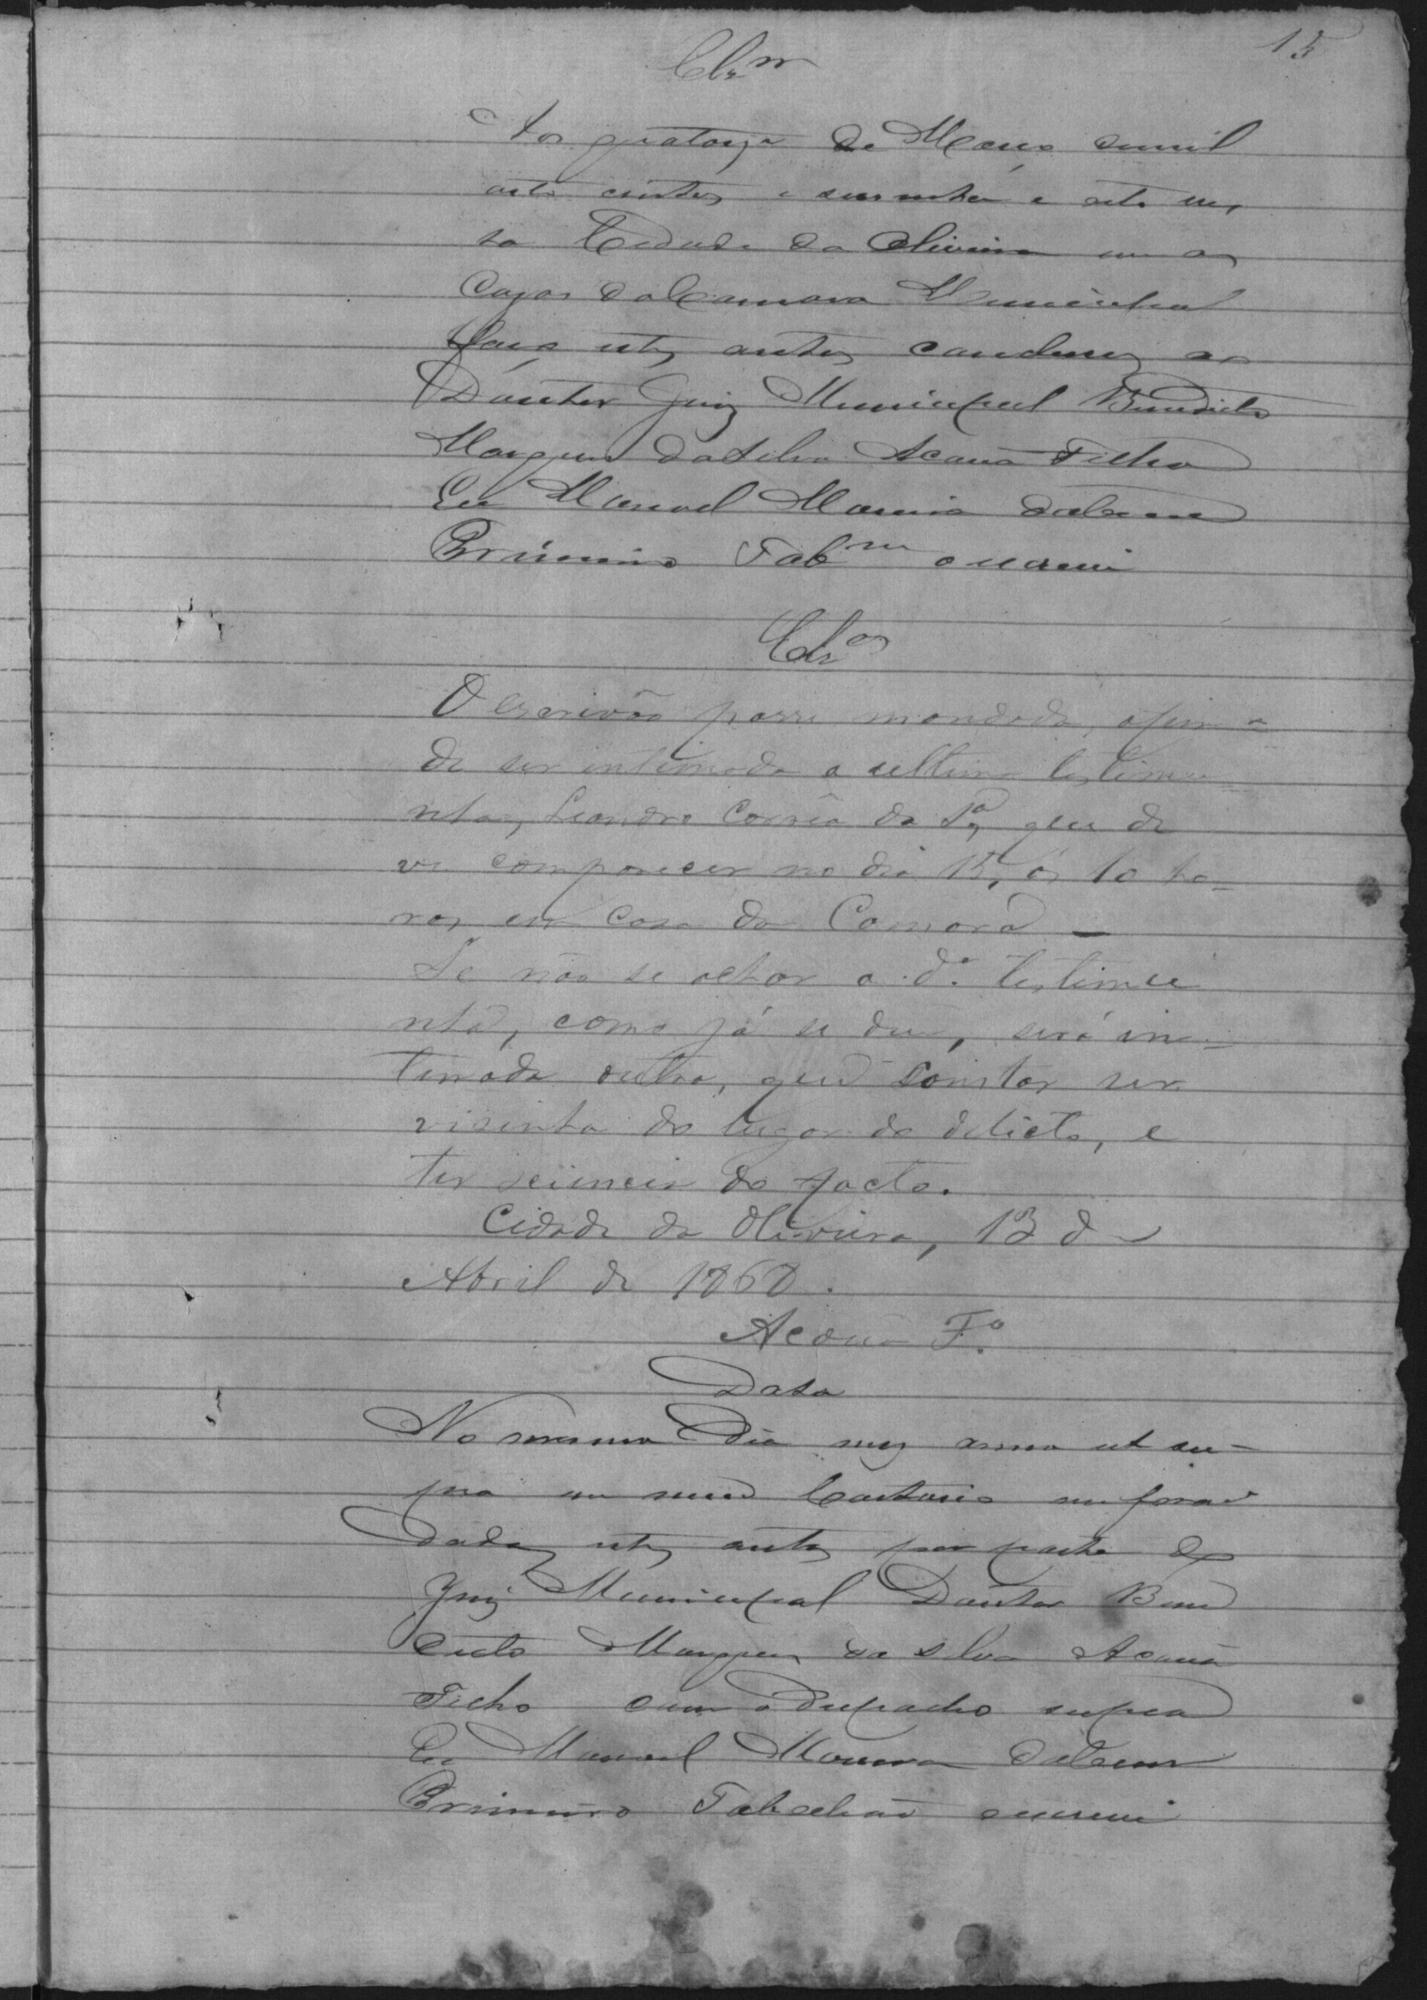 15
Clzm
Aos quatorze de Março demil
oito centos e secenta e oito nes
ta Cidade da Oliveira em as
Cazas da Camara Municipal
faço estes autos concluzos ao
Doutor Juiz Municipal Benedicto
Marques da Silva Acauã Filho
Eu Manoel
Primeiro Tabm o escrevi
Clzos
O Escrivão passe mandado, afim
de ser intimada a ultima testimu
nha, Leandro Corrêa da Sa, que de
ve comparecer no dia 15, ás 10 ho-
ras, em casa da Camara —
Se não se achar a da testimu
nha, como já se deu, será in-
timada outra, que constar ser
visinha do lugar do delicto, e
ter sciencia do facto.
Cidade da Oliveira, 13 de
Abril de 1868.
Acauã Fo.
Data
No mesmo Dia mez anno ut su-
pra em meu Cartorio me forão
dados estes autos por parte do
Juiz Municipal Doutor Bene
dicto Marques da Silva Acauã
Filho com o Despacho supra
Eu Manoel
Primeiro Tabelião o escrevi